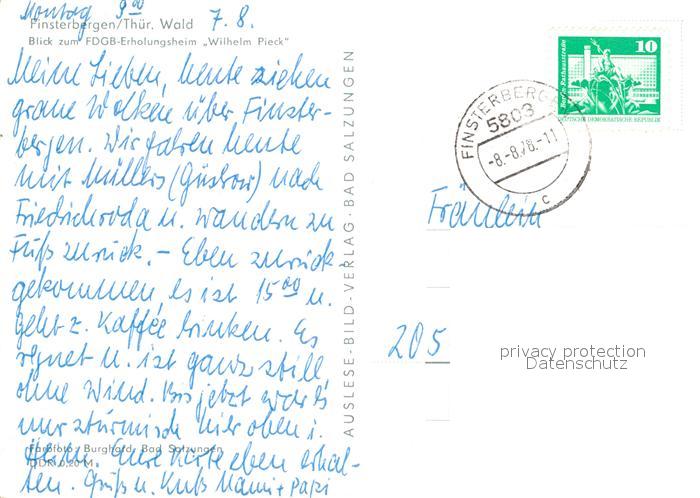 Montag 9⁰⁰ 7.8.
Finsterbergen/Thür. Wald
Blick zum FDGB-Erholungsheim „Wilhelm Pieck"
Meine Lieben, heute ziehen
graue Wolken über Finster-
bergen. Wir fahren heute
mit Müllers (Güstrow) nach
Friedrichroda u. wandern zu
Fuß zurück. – Eben zurück-
gekommen, es ist 15⁰⁰ u.
geht z. Kaffee trinken. Es
regnet u. ist ganz still
ohne Wind. Bis jetzt war es
nur stürmisch hier oben i.
Heim. Eure Karte eben erhal-
ten. Gruß u. Kuß Mami + Papi
Farbfoto: Burghard, Bad Salzungen
DDR 0,20 M
AUSLESE-BILD-VERLAG · BAD SALZUNGEN
10
Berlin, Rathausstraße
DEUTSCHE DEMOKRATISCHE REPUBLIK
FINSTERBERGEN
5803
-8.-8.78.-11
c
Fräulein
205
privacy protection
Datenschutz